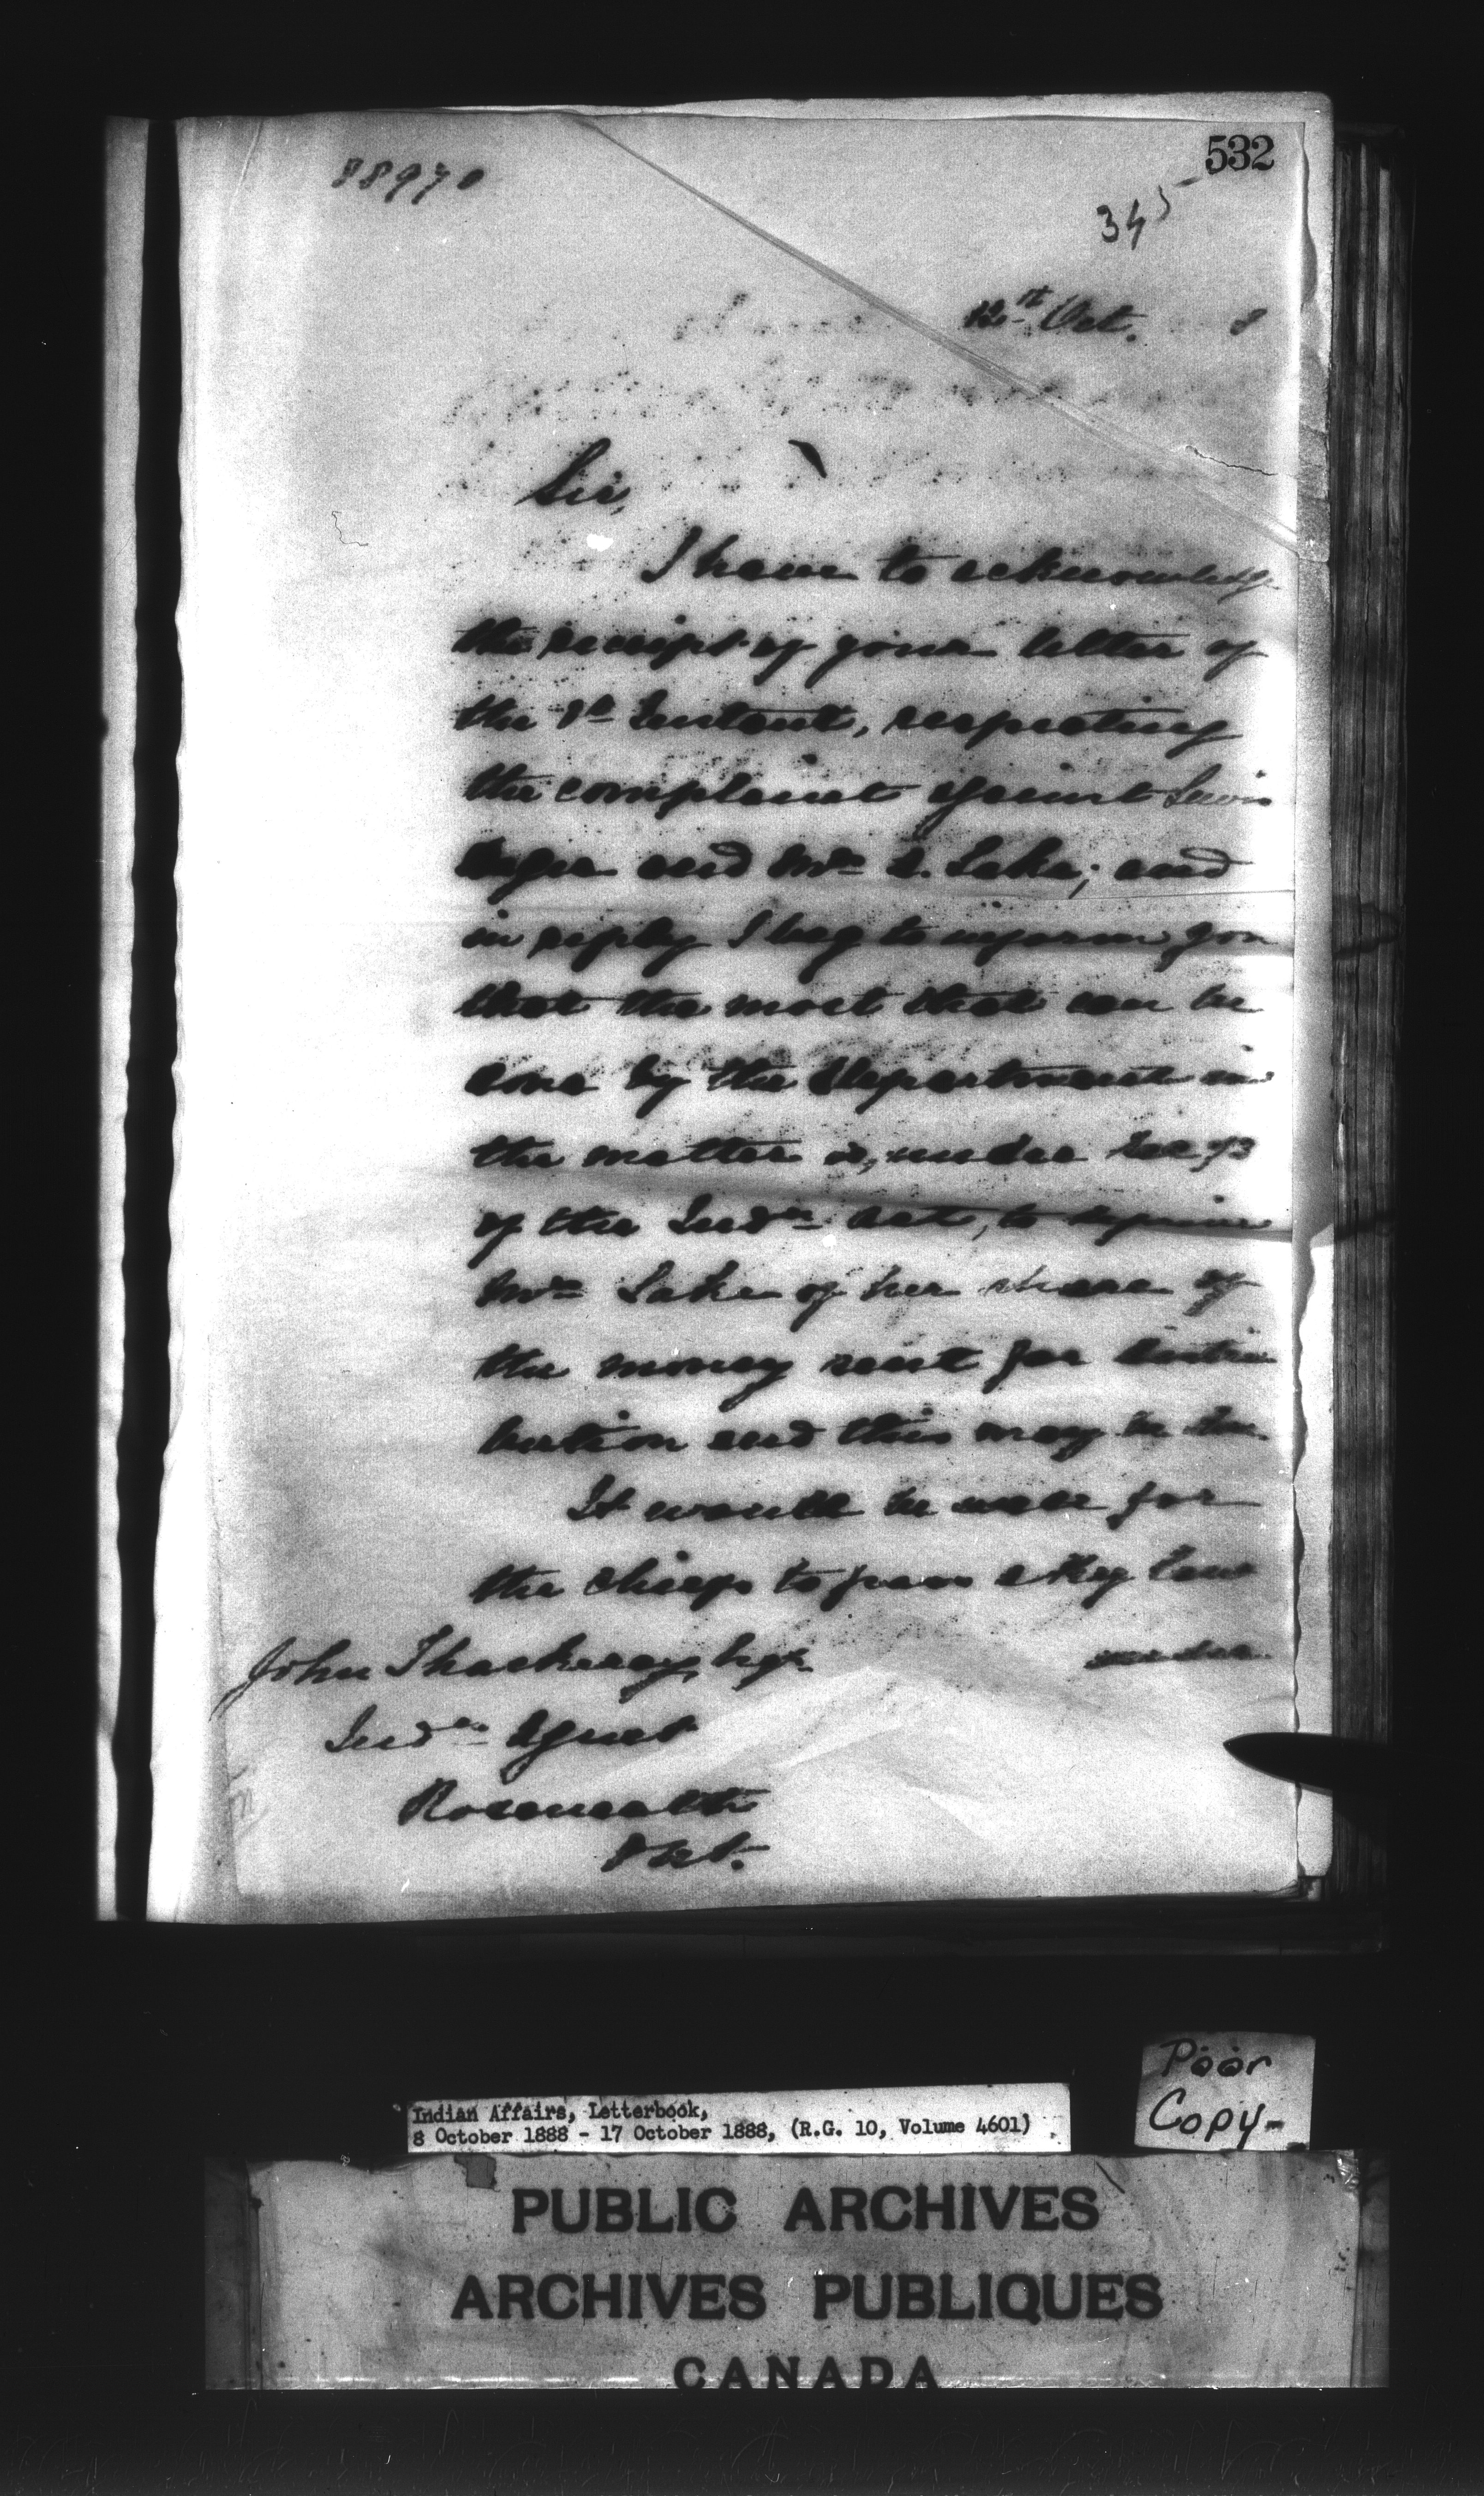 532
88970
345
12th Oct. 8
Sir,
I have to acknowledge
the receipt of your letter of
the Instant, respecting
the complaint against Lewis
and Mrs Lake; and
in reply I beg to inform you
that the most that can be
done by the Department in
the matter is, under Sec 73
of the Indn Act, to deprive
Mrs Lake of her share of
the money sent for distri
bution and this may be
It would be well for
the chiefs to pass a By law
under
John Thackeray, Esqr
Indn Agent
Roseneath
Ont.
Poor
Copy-
Indian Affairs, Letterbook,
8 October 1888 - 17 October 1888, (R.G. 10, Volume 4601)
PUBLIC ARCHIVES
ARCHIVES PUBLIQUES
CANADA